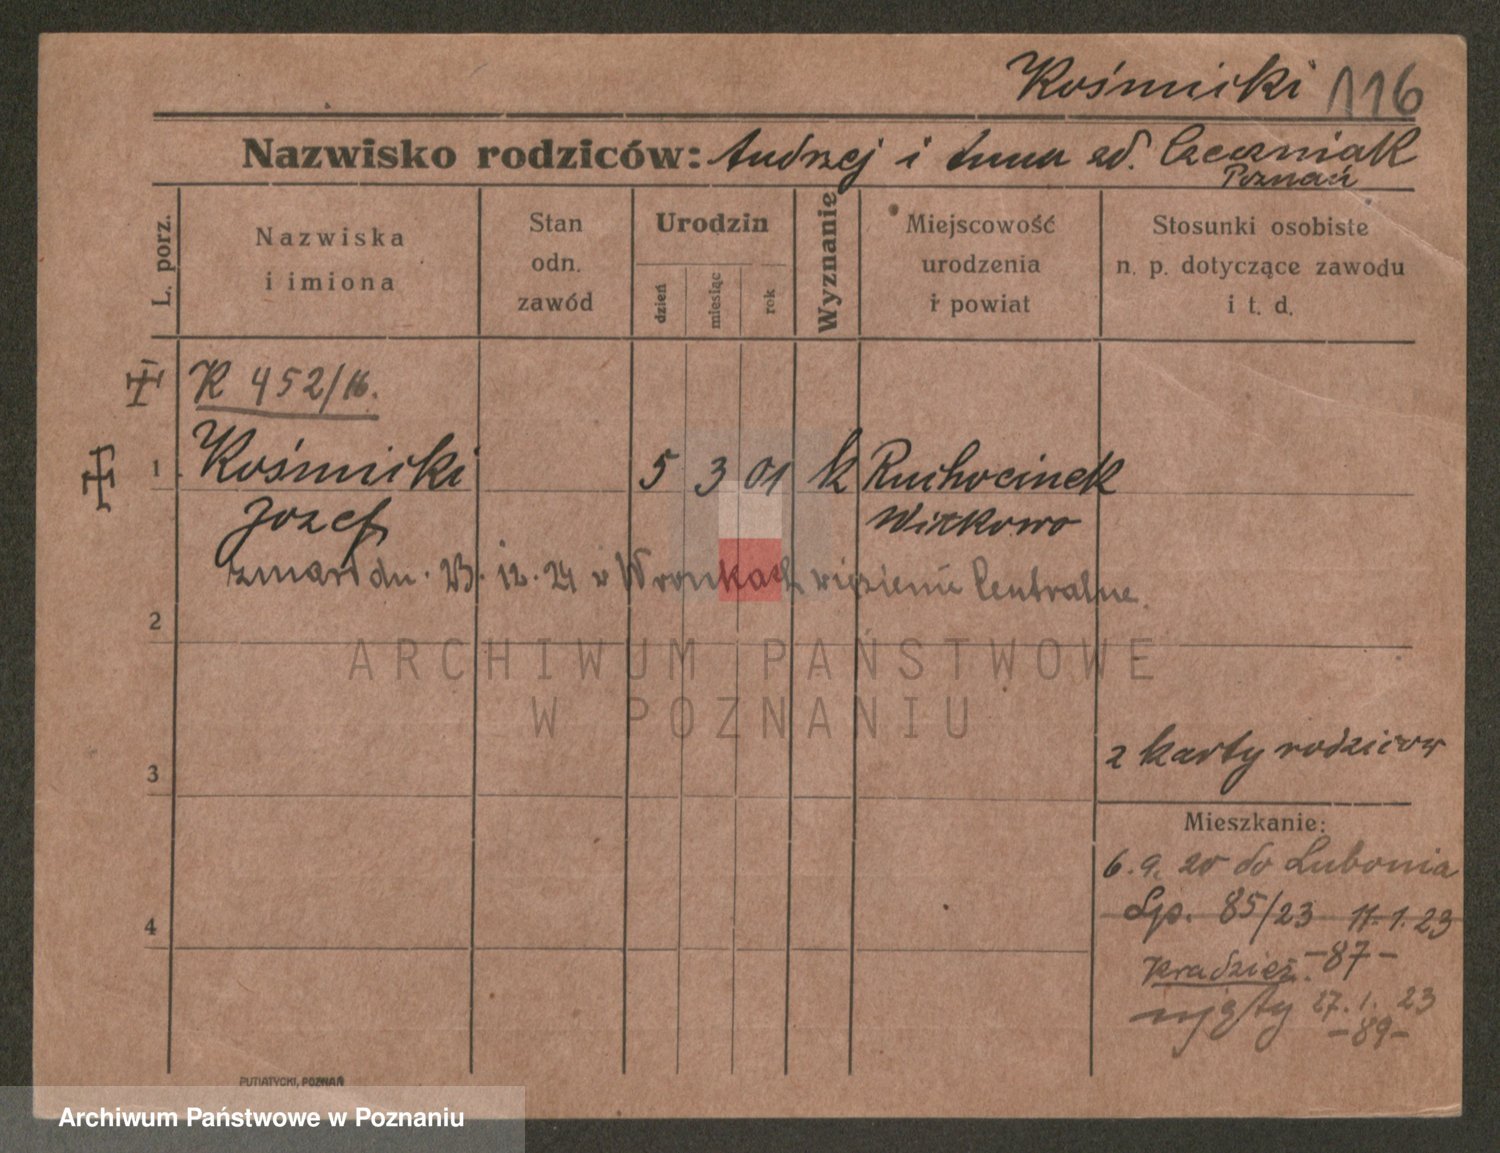 Kośmicki 116
Nazwisko rodziców: Andrzej i Anna zd. Czerniak
Poznań
L. porz.
Nazwiska
i imiona
Stan
odn.
zawód
Urodzin
dzień
miesiąc
rok
Wyznanie
Miejscowość
urodzenia
i powiat
Stosunki osobiste
n. p. dotyczące zawodu
i t. d.
K 452/16.
1 Kośmicki 5 3 01 k Ruchocinek
Jozef Witkowo
zmarł dn. 23. 12. 24 w Wronkach więzienie Centralne.
2
ARCHIWUM PAŃSTWOWE
W POZNANIU
z karty rodziców
3
Mieszkanie:
6. 9. 20 do Lubonia
Lp. 85/23 11. 1. 23
4
-87-
Kradzież.
ujęty 27. 1. 23
-89-
PUTIATYCKI, POZNAŃ
Archiwum Państwowe w Poznaniu